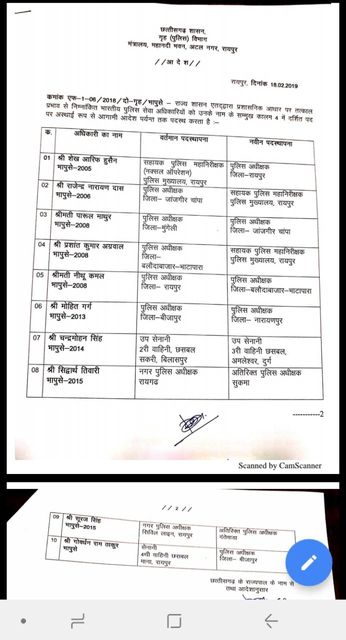 छत्तीसगढ़ शासन,
गृह (पुलिस) विभाग
मंत्रालय, महानदी भवन, अटल नगर, रायपुर
//आ दे श//
रायपुर, दिनांक 18.02.2019
क्रमांक एफ-1-06/2018/दो-गृह/भापुसे - राज्य शासन एतद्द्वारा प्रशासनिक आधार पर तत्काल
प्रभाव से निम्नांकित भारतीय पुलिस सेवा अधिकारियों को उनके नाम के सम्मुख कालम 4 में दर्शित पद
पर अस्थाई रूप से आगामी आदेश पर्यन्त तक पदस्थ करता है :-
क. अधिकारी का नाम वर्तमान पदस्थापना नवीन पदस्थापना
01 श्री शेख आरिफ हुसैन सहायक पुलिस महानिरीक्षक पुलिस अधीक्षक
भापुसे-2005 (नक्सल ऑपरेशन) जिला-रायपुर
पुलिस मुख्यालय, रायपुर
02 श्री राजेन्द्र नारायण दास पुलिस अधीक्षक सहायक पुलिस महानिरीक्षक
भापुसे-2006 जिला- जांजगीर चांपा पुलिस मुख्यालय, रायपुर
03 श्रीमती पारूल माथुर पुलिस अधीक्षक पुलिस अधीक्षक
भापुसे-2008 जिला-मुंगेली जिला- जांजगीर चांपा
04 श्री प्रशांत कुमार अग्रवाल पुलिस अधीक्षक सहायक पुलिस महानिरीक्षक
भापुसे-2008 जिला- पुलिस मुख्यालय, रायपुर
बलौदाबाजार-भाटापारा
05 श्रीमती नीथू कमल पुलिस अधीक्षक पुलिस अधीक्षक
भापुसे-2008 जिला- रायपुर जिला-बलौदाबाजार-भाटापारा
06 श्री मोहित गर्ग पुलिस अधीक्षक पुलिस अधीक्षक
भापुसे-2013 जिला-बीजापुर जिला- नारायणपुर
07 श्री चन्द्रमोहन सिंह उप सेनानी उप सेनानी
भापुसे-2014 2री वाहिनी, छसबल 3री वाहिनी छसबल,
सकरी, बिलासपुर अमलेश्वर, दुर्ग
08 श्री सिद्धार्थ तिवारी नगर पुलिस अधीक्षक अतिरिक्त पुलिस अधीक्षक
भापुसे-2015 रायगढ सुकमा
-----------2
Scanned by CamScanner
//2//
09 श्री सूरज सिंह नगर पुलिस अधीक्षक अतिरिक्त पुलिस अधीक्षक
भापुसे-2015 सिविल लाइन, रायपुर दंतेवाडा
10 श्री गोवर्धन राम ठाकुर सेनानी पुलिस अधीक्षक
भापुसे 4थी वाहिनी छसबल जिला- बीजापुर
माना, रायपुर
छत्तीसगढ़ के राज्यपाल के नाम से
तथा आदेशानुसार